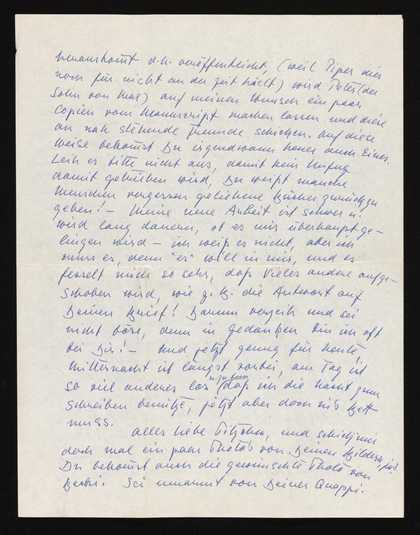 herauskommt d.h. veröffentlicht, (weil Piper dies
noch für nicht an der Zeit hält) wird Peter (der
Sohn von Max) auf meinen Wunsch ein paar
Copien vom Manuscript machen lassen und diese
an nah stehende Freunde schicken. Auf diese
Weise bekommst Du irgendwann heuer dann Eines.
Leih es bitte nicht aus, damit kein Unfug
damit getrieben wird, Du weißt manche
Menschen vergessen geliehene Bücher zurückzu
geben! – Meine neue Arbeit ist schwer u.
wird lang dauern, ob es mir überhaupt ge-
lingen wird – ich weiß es nicht, aber ich
muss es, denn "es" will in mir, und es
fesselt mich so sehr, daß Vieles andere aufge-
schoben wird, wie z.B. die Antwort auf
Deinen Brief! Darum verzeih und sei
nicht böse, denn in Gedanken bin ich oft
bei Dir! – Und jetzt genug für heute.
Mitternacht ist längst vorbei, am Tag ist
so viel anderes los daß ich die Nacht zum
Schreiben benütze, jetzt aber doch ins Bett
muss.
Alles liebe und schick mir
doch mal ein paar Photos von Deinen Bildern,
Du bekommst auch die gewünschte Photo von
Sei umarmt von Deiner Quappi.